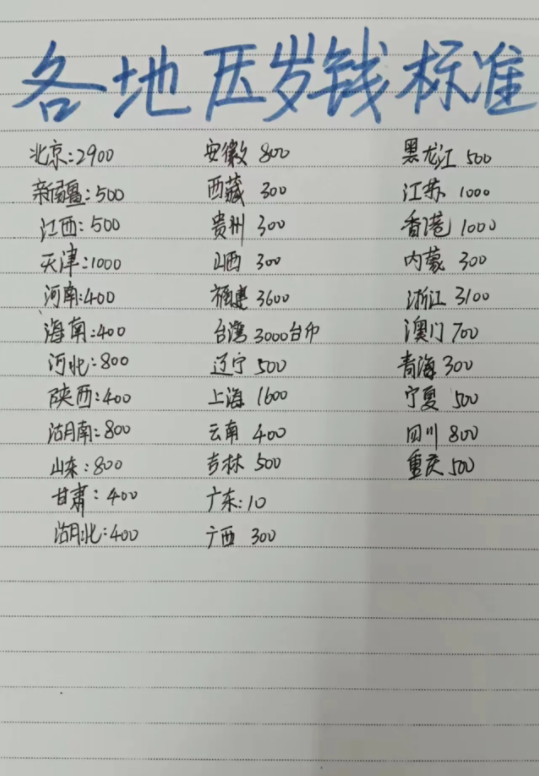 各地压岁钱标准
北京:2900 安徽 800 黑龙江 500
新疆:500 西藏 300 江苏 1000
江西:500 贵州 300 香港 1000
天津:1000 山西 300 内蒙 300
河南:400 福建 3600 浙江 3100
海南:400 台湾 3000台币 澳门 700
河北:800 辽宁 500 青海 300
陕西:400 上海 1600 宁夏 500
湖南:800 云南 400 四川 800
山东:800 吉林 500 重庆 500
甘肃:400 广东:10
湖北:400 广西 300